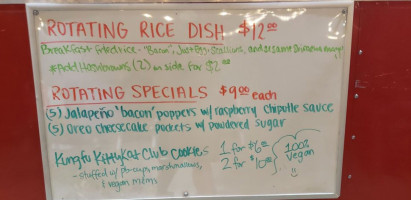 ROTATING RICE DISH $12.00
Breakfast fried rice - "Bacon", Just Egg, Scallions, and sesame Sriracha mayo
*Add Hashbrowns (2) on side for $2.00
ROTATING SPECIALS $9.00 each
(5) Jalapeño "bacon" poppers w/ raspberry chipotle sauce
(5) Oreo cheesecake pockets w/ powdered sugar
Kung fu Kittykat Club Cookies 1 for $6.00
- stuffed w/ pb cups, marshmallows, 2 for $10.00
& vegan m&ms
100% vegan